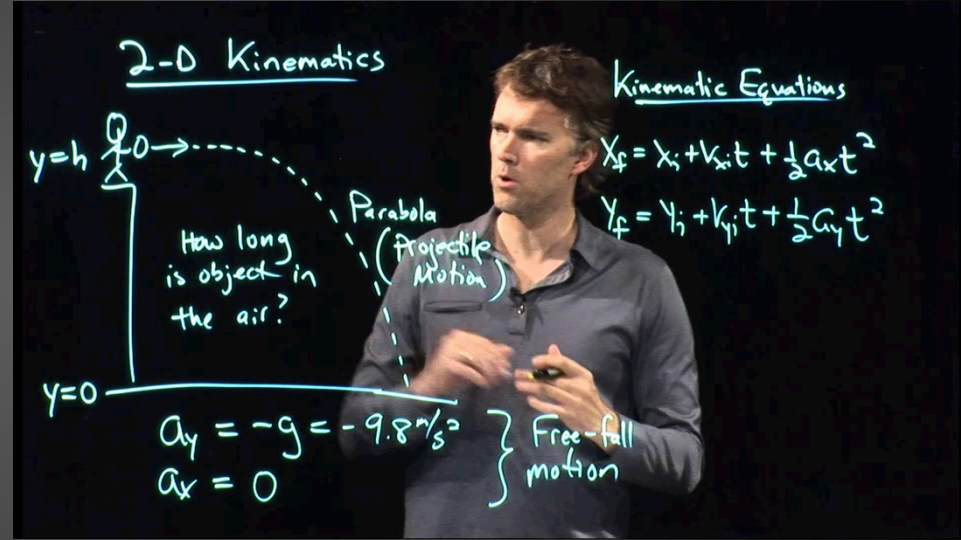 2-D Kinematics
y=h
How long
is object in
the air?
Parabola
(Projectile
Motion)
y=0
ay = -g = -9.8 m/s²
ax = 0
} Free-fall
motion
Kinematic Equations
Xf = Xi + Vxi t + ½ ax t²
Yf = Yi + Vyi t + ½ ay t²